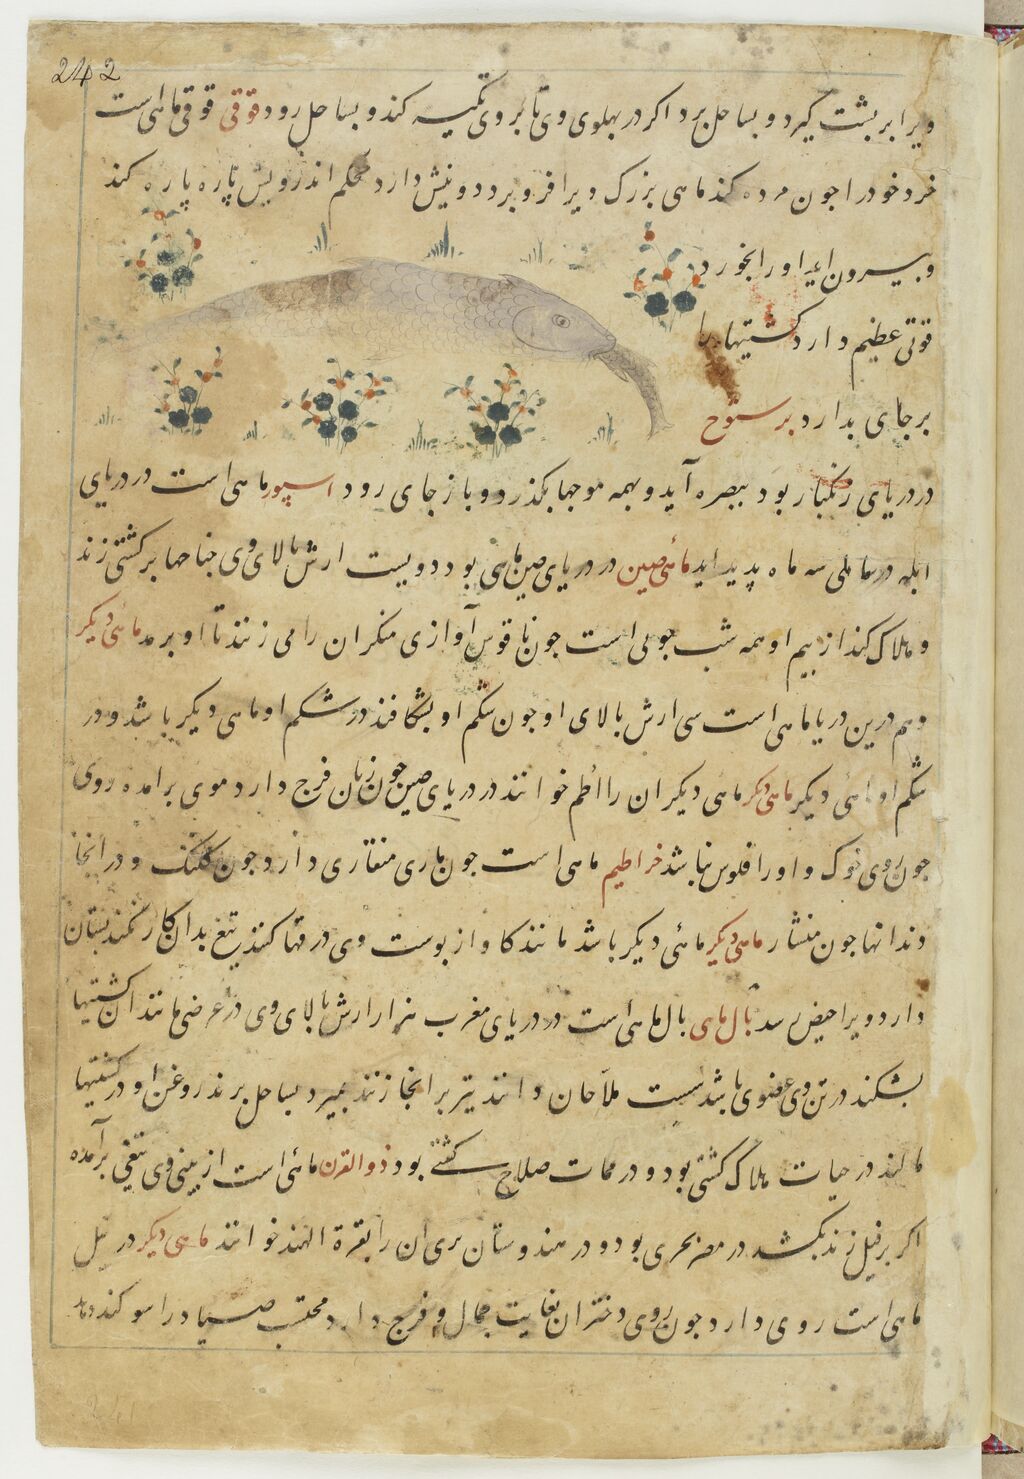 242
ویرا بر پشت گیرد و بساحل برد اگر در پهلوی وی تا بر وی تکیه کند و بساحل رود قوقی قوقی ماهی است
خرد خود را جون مرده کند ماهی بزرک ویرا فرو برد دو نیش دارد محکم اندرونش پاره پاره کند
و بیرون اید او را بخورد
قوتی عظیم دارد کشتیها را
بر جای بدارد برستوح
در دریای زنکبار بود ببصره آید و بهمه موجها بکذرد و باز جای رود اسپور ماهی است در دریای
ابله در سالی سه ماه پدید اید ماهٔی صین در دریای صین ماهی بود دویست ارش بالای وی جناحها بر کشتی زند
و هلاک کند از بیم او همه شب جوبی است جون ناقوس آوازی منکر ان را می زنند تا او برمد ماهٔی دیکر
و هم درین دریا ماهی است سی ارش بالای او جون شکم او بشکافند در شکم او ماهی دیکر باشد و در
شکم او ماهیٔ دیکر ماهی دکر ماهی دیکر ان را اطم خوانند در دریای صین جون زنان فرج دارد موی برامده روی
جون روی خوک و او را فلوس نباشد خراطیم ماهی است جون ماری منقاری دارد جون کلنک و در انجا
دندانها جون منشار ماهی دیکر ماهیٔ دیکر باشد مانند کاو از پوست وی درقها کنند تیغ بدان کار نکند پستان
دارد ویرا حیض رسد بال ماهی بال ماهیٔ است در دریای مغرب هزار ارش بالای وی در عرضی مانند ان کشتیها
بشکند در تن وی عضوی باشد سست ملاحان دانند تیر بر انجا زنند بمیرد بساحل برند روغن او در کشتیها
مالند در حیات هلاک کشتی بود و در ممات صلاح کشتی بود ذوالقرن ماهیٔ است از بینی وی تیغی برآمده
اکر بر فیل زند بکشد در مصر بحری بود و در هندوستان بری ان را بقرة الهند خوانند ماهی دیکر در نیل
ماهی است روی دارد جون روی دختران بغایت جمال و فرج دارد محتسب صیاد را سوکند دهد